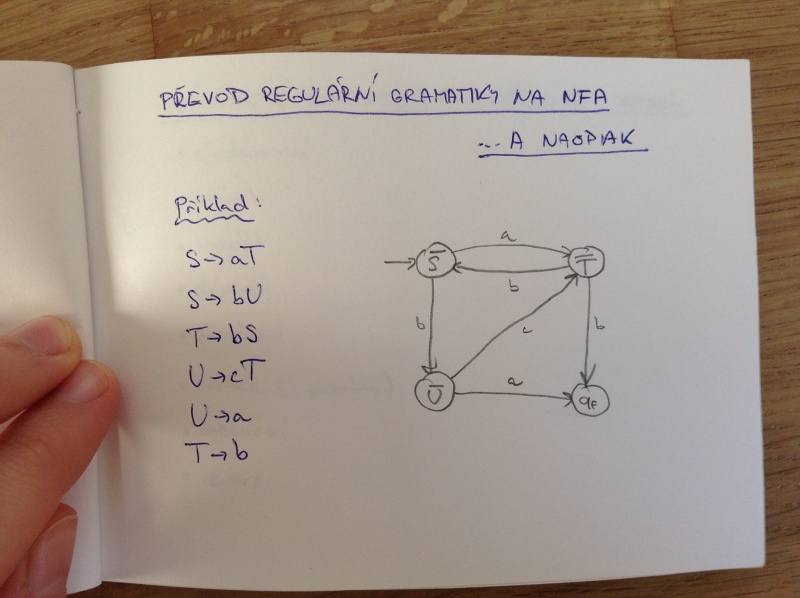 PŘEVOD REGULÁRNÍ GRAMATIKY NA NFA
... A NAOPAK
Příklad:
S→aT
S→bU
T→bS
U→cT
U→a
T→b
a
S̅ T̅
b
b c b
U̅ a qF